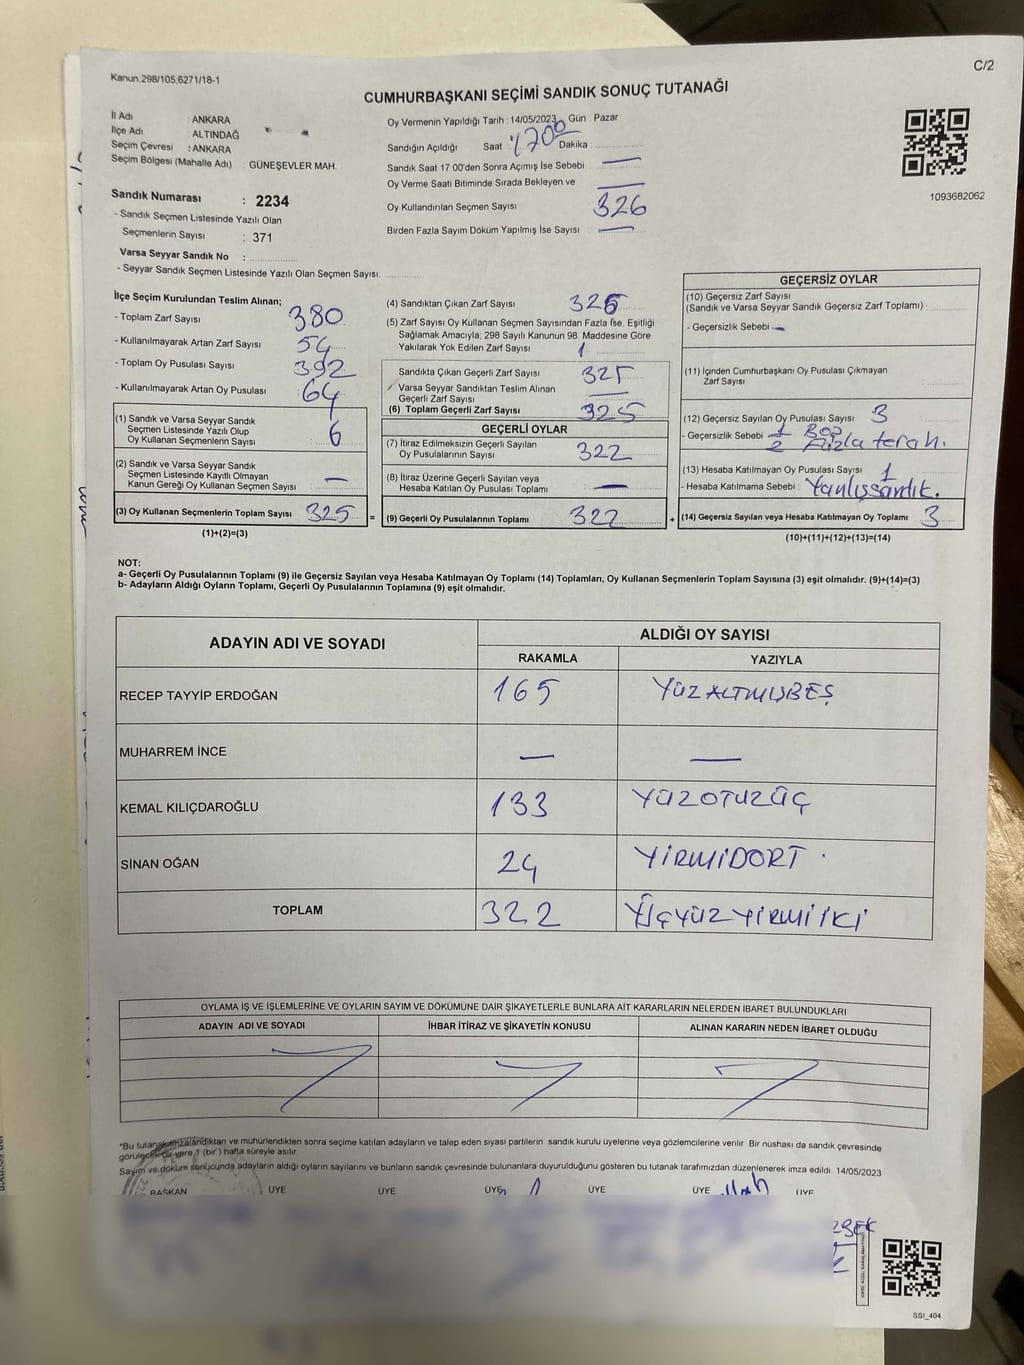 C/2
Kanun.298/105,6271/18-1
CUMHURBAŞKANI SEÇİMİ SANDIK SONUÇ TUTANAĞI
İl Adı ANKARA
İlçe Adı ALTINDAĞ
Seçim Çevresi : ANKARA
Seçim Bölgesi (Mahalle Adı) . GÜNEŞEVLER MAH.
Sandık Numarası : 2234
- Sandık Seçmen Listesinde Yazılı Olan
Seçmenlerin Sayısı : 371
Varsa Seyyar Sandık No :
- Seyyar Sandık Seçmen Listesinde Yazılı Olan Seçmen Sayısı:
Oy Vermenin Yapıldığı Tarih : 14/05/2023 Gün : Pazar
Sandığın Açıldığı Saat 1700 Dakika :
Sandık Saat 17 00'den Sonra Açımış İse Sebebi : —
Oy Verme Saati Bitiminde Sırada Bekleyen ve —
Oy Kullandırılan Seçmen Sayısı 326
Birden Fazla Sayım Döküm Yapılmış İse Sayısı —
1093682062
İlçe Seçim Kurulundan Teslim Alınan;
- Toplam Zarf Sayısı 380
- Kullanılmayarak Artan Zarf Sayısı 54
- Toplam Oy Pusulası Sayısı 392
- Kullanılmayarak Artan Oy Pusulası 64
(1) Sandık ve Varsa Seyyar Sandık
Seçmen Listesinde Yazılı Olup
Oy Kullanan Seçmenlerin Sayısı 6
(2) Sandık ve Varsa Seyyar Sandık
Seçmen Listesinde Kayıtlı Olmayan
Kanun Gereği Oy Kullanan Seçmen Sayısı —
(3) Oy Kullanan Seçmenlerin Toplam Sayısı 325 =
(1)+(2)=(3)
(4) Sandıktan Çıkan Zarf Sayısı 326
(5) Zarf Sayısı Oy Kullanan Seçmen Sayısından Fazla İse, Eşitliği
Sağlamak Amacıyla; 298 Sayılı Kanunun 98. Maddesine Göre
Yakılarak Yok Edilen Zarf Sayısı 1
Sandıkta Çıkan Geçerli Zarf Sayısı 325
Varsa Seyyar Sandıktan Teslim Alınan
Geçerli Zarf Sayısı —
(6) Toplam Geçerli Zarf Sayısı 325
GEÇERLİ OYLAR
(7) İtiraz Edilmeksizin Geçerli Sayılan
Oy Pusulalarının Sayısı 322
(8) İtiraz Üzerine Geçerli Sayılan veya
Hesaba Katılan Oy Pusulası Toplamı —
(9) Geçerli Oy Pusulalarının Toplamı 322 +
GEÇERSİZ OYLAR
(10) Geçersiz Zarf Sayısı
(Sandık ve Varsa Seyyar Sandık Geçersiz Zarf Toplamı)
- Geçersizlik Sebebi —
(11) İçinden Cumhurbaşkanı Oy Pusulası Çıkmayan
Zarf Sayısı
(12) Geçersiz Sayılan Oy Pusulası Sayısı 3
- Geçersizlik Sebebi 1 Boş
2 Fazla terah.
(13) Hesaba Katılmayan Oy Pusulası Sayısı 1
- Hesaba Katılmama Sebebi Yanlış sandık.
(14) Geçersiz Sayılan veya Hesaba Katılmayan Oy Toplamı 3
(10)+(11)+(12)+(13)=(14)
NOT:
a- Geçerli Oy Pusulalarının Toplamı (9) ile Geçersiz Sayılan veya Hesaba Katılmayan Oy Toplamı (14) Toplamları, Oy Kullanan Seçmenlerin Toplam Sayısına (3) eşit olmalıdır. (9)+(14)=(3)
b- Adayların Aldığı Oyların Toplamı, Geçerli Oy Pusulalarının Toplamına (9) eşit olmalıdır.
ADAYIN ADI VE SOYADI ALDIĞI OY SAYISI
RAKAMLA YAZIYLA
RECEP TAYYİP ERDOĞAN 165 YÜZALTMIŞBEŞ
MUHARREM İNCE — —
KEMAL KILIÇDAROĞLU 133 YÜZOTUZÜÇ
SİNAN OĞAN 24 YİRMİDÖRT
TOPLAM 322 ÜÇYÜZYİRMİİKİ
OYLAMA İŞ VE İŞLEMLERİNE VE OYLARIN SAYIM VE DÖKÜMÜNE DAİR ŞİKAYETLERLE BUNLARA AİT KARARLARIN NELERDEN İBARET BULUNDUKLARI
ADAYIN ADI VE SOYADI İHBAR İTİRAZ VE ŞİKAYETİN KONUSU ALINAN KARARIN NEDEN İBARET OLDUĞU
"Bu tutanak imzalandıktan ve mühürlendikten sonra seçime katılan adayların ve talep eden siyasi partilerin sandık kurulu üyelerine veya gözlemcilerine verilir Bir nüshası da sandık çevresinde
görülecek bir yere 1 (bir) hafta süreyle asılır.
Sayım ve döküm sonucunda adayların aldığı oyların sayılarını ve bunların sandık çevresinde bulunanlara duyurulduğunu gösteren bu tutanak tarafımızdan düzenlenerek imza edildi. 14/05/2023
BAŞKAN ÜYE ÜYE ÜYE ÜYE ÜYE ÜYE
SSI_404